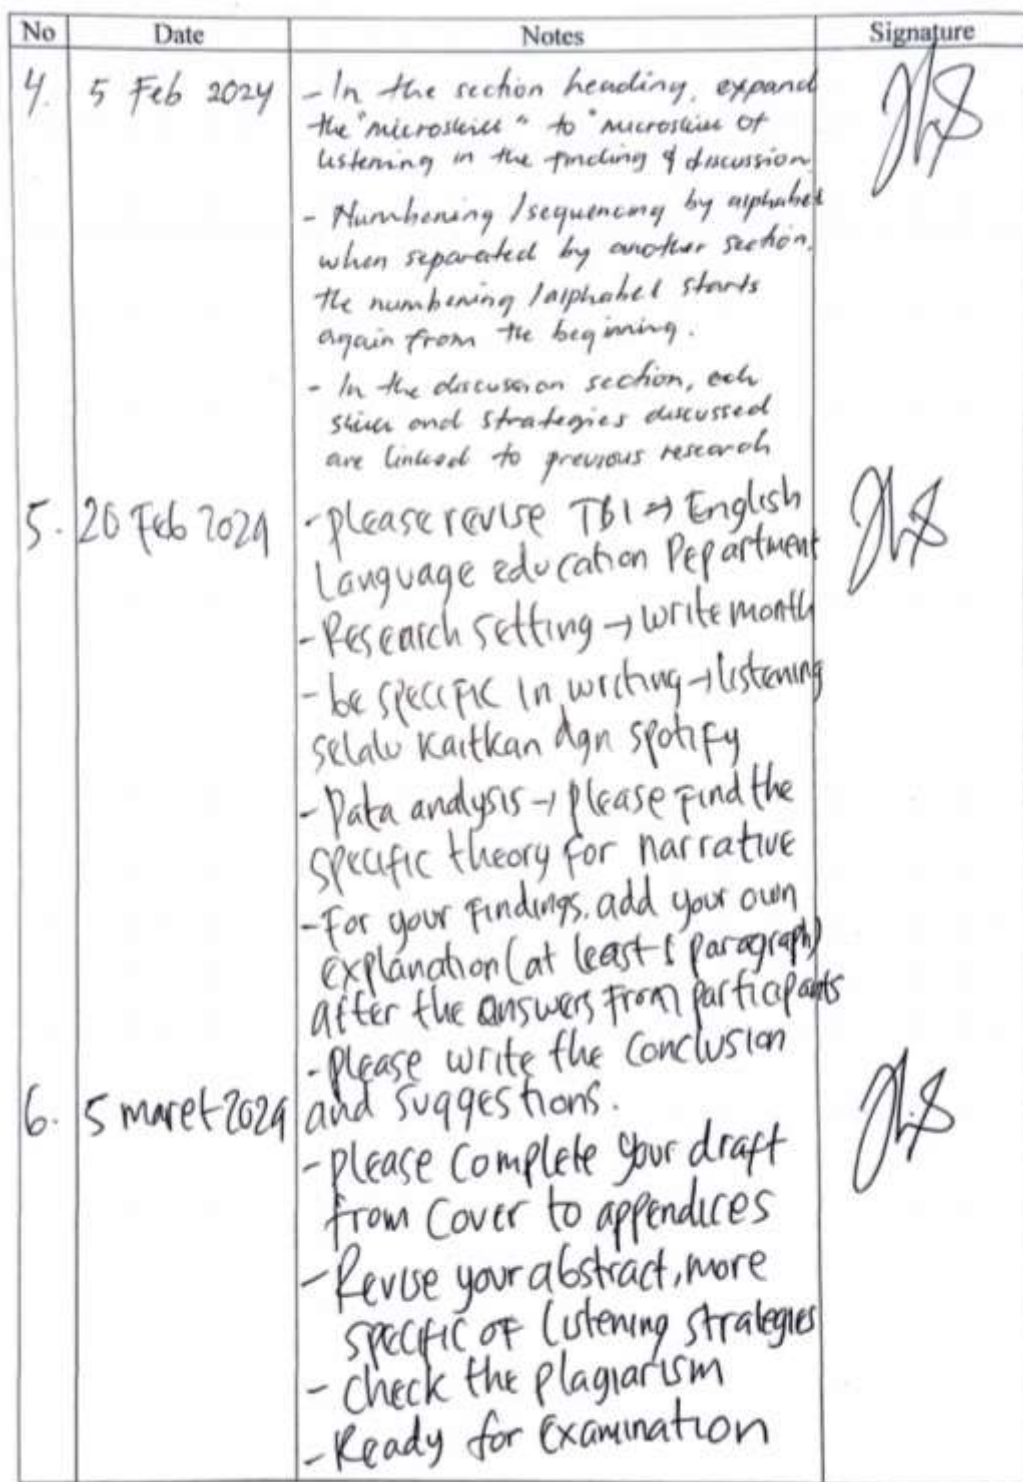 No Date Notes Signature
4. 5 Feb 2024 - In the section heading, expand
the "microskill" to "microskill of
listening in the finding & discussion
- Numbening / sequencing by alphabet
when separated by another section.
the numbening / alphabet starts
again from the beginning.
- In the discussion section, ech
skill and strategies discussed
are linked to previous research
5. 20 Feb 2024 - please revise TBI → English
Language education Department
- Research setting → write month
- be specific in writing → listening
selalu kaitkan dgn spotify
- Data analysis → please find the
specific theory for narrative
- For your findings. add your own
explanation (at least 1 paragraph)
after the answers from participants
- please write the conclusion
6. 5 maret 2024 and suggestions.
- please complete your draft
from cover to appendices
- Revise your abstract, more
specific of listening strategies
- check the plagiarism
- Ready for examination